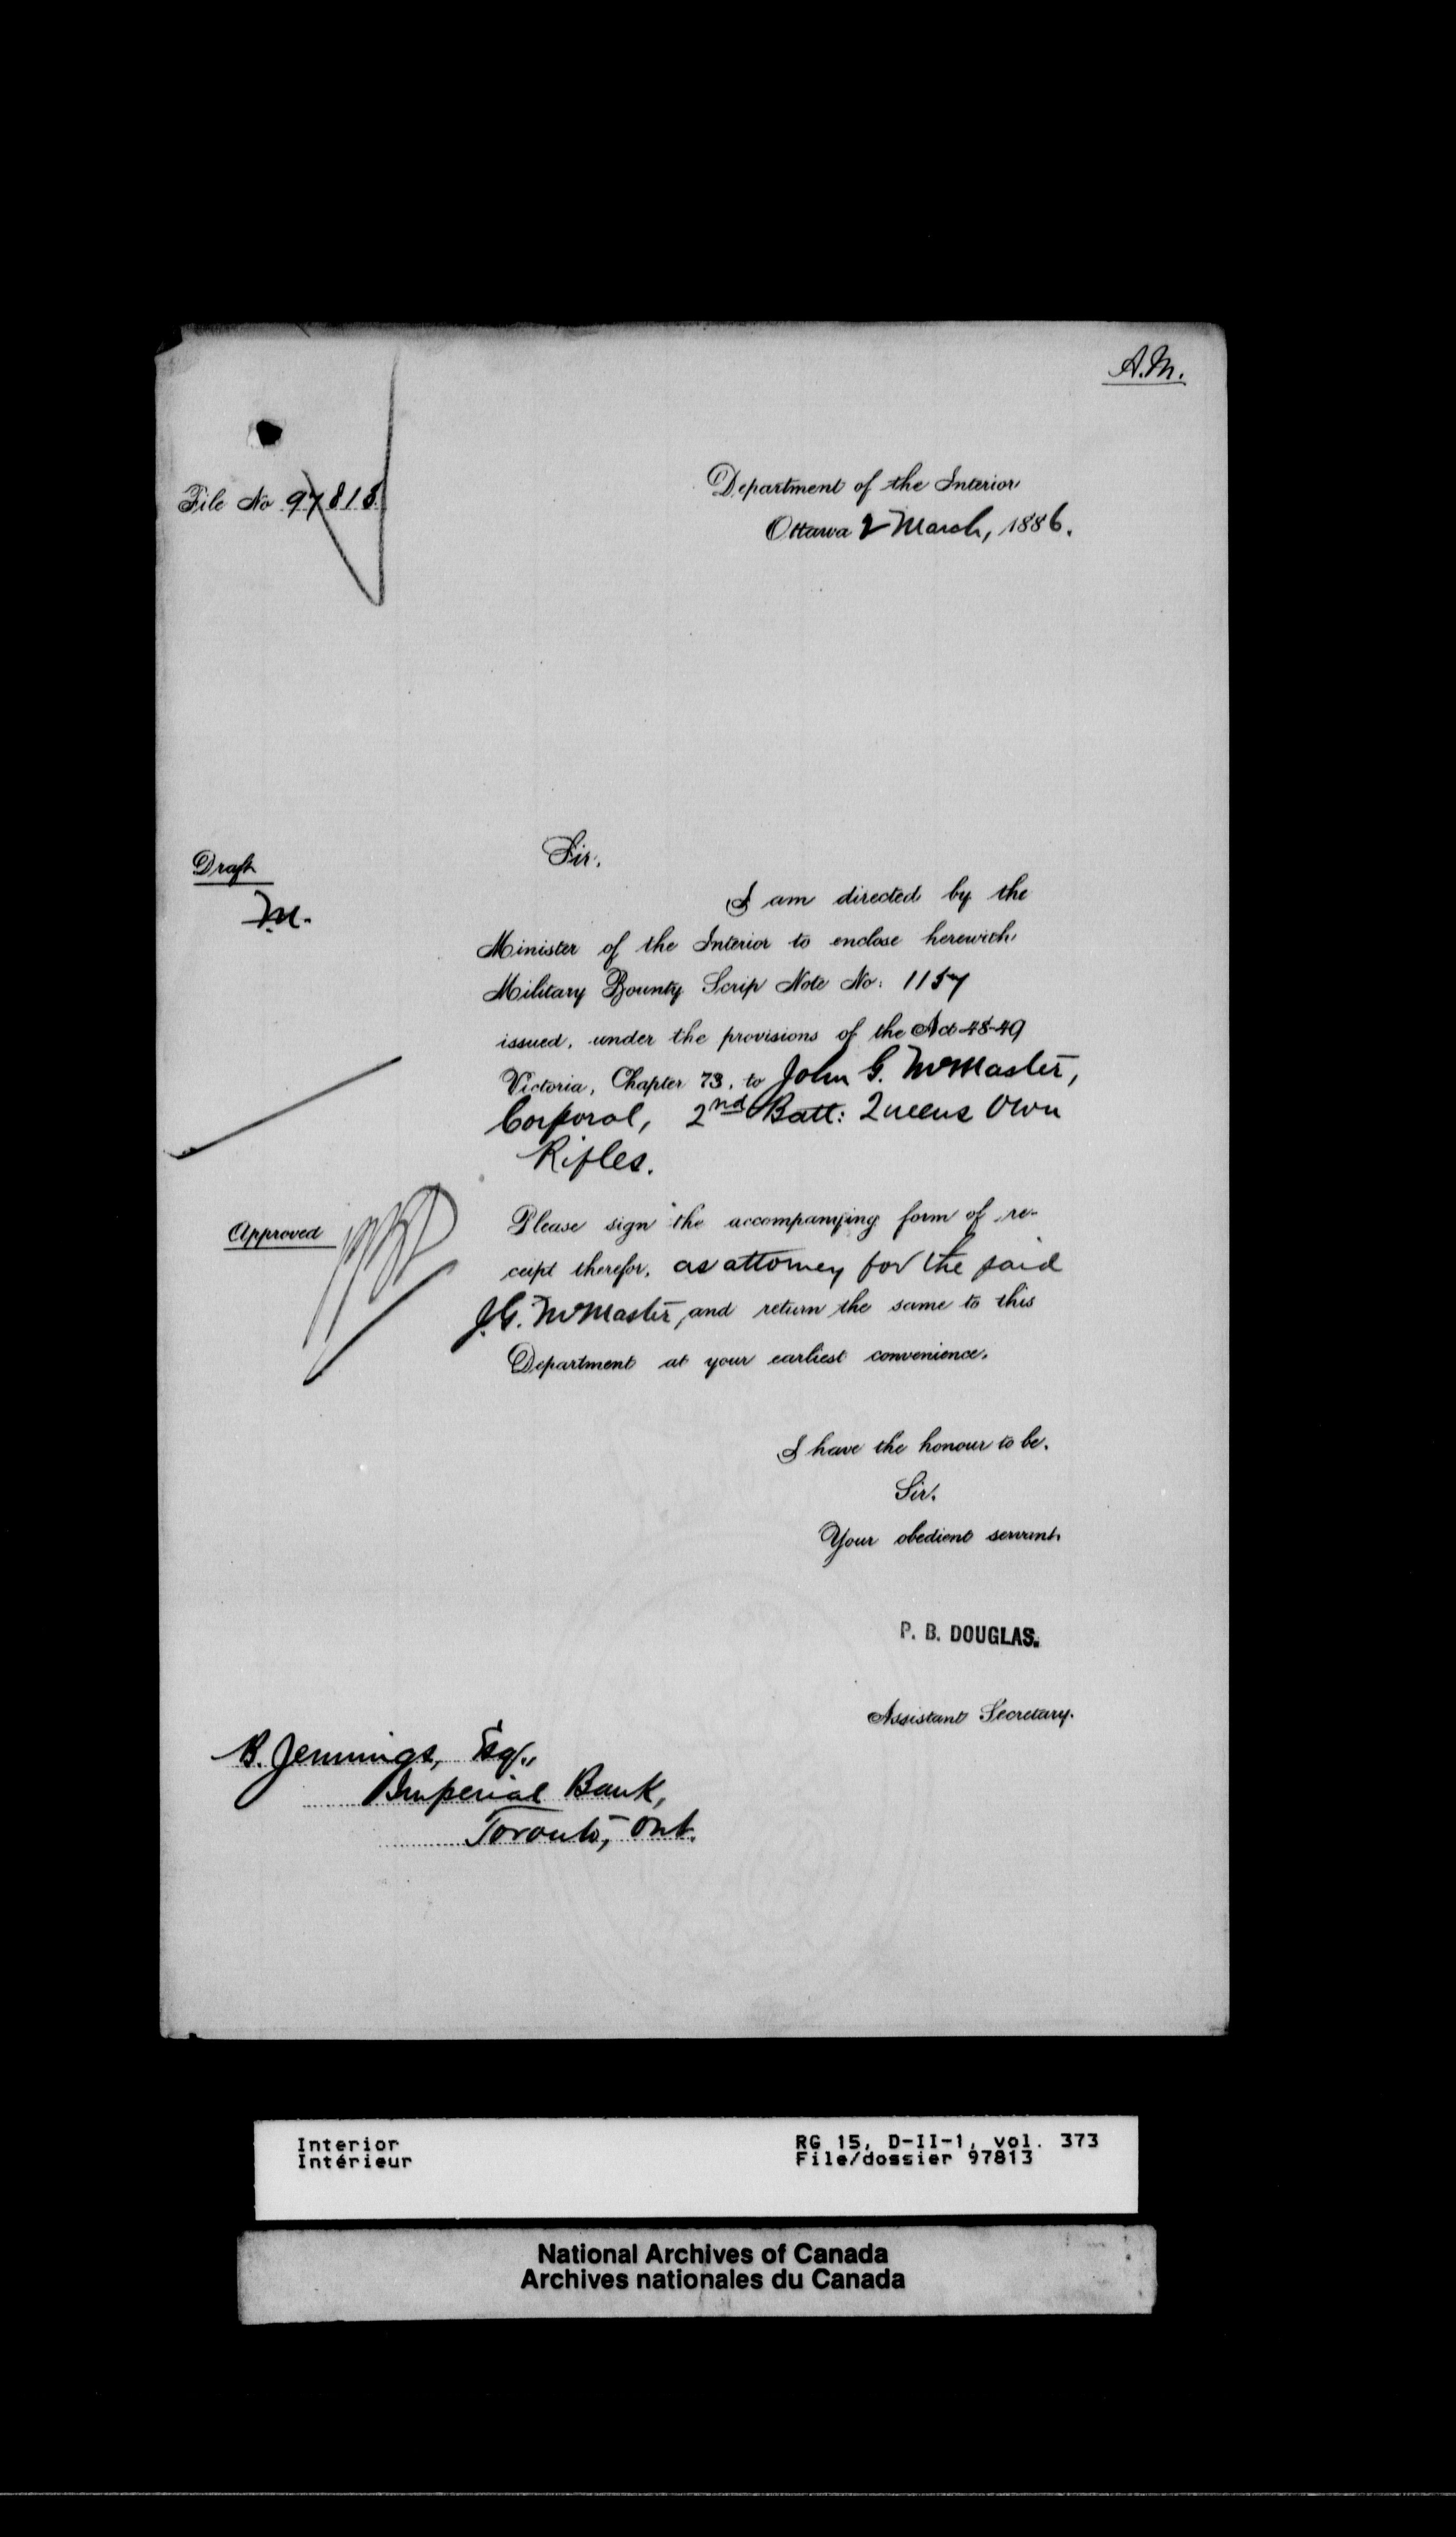 A.M.
File No 97813
Department of the Interior
Ottawa 2 March, 1886.
Draft
M.
Sir,
I am directed by the
Minister of the Interior to enclose herewith
Military Bounty Scrip Note No: 1157
issued, under the provisions of the Act 48-49
Victoria, Chapter 73, to John G. McMaster,
Corporal, 2nd Batt: Queens Own
Rifles.
Approved
Please sign the accompanying form of re-
ceipt therefor, as attorney for the said
J.G. McMaster, and return the same to this
Department at your earliest convenience.
I have the honour to be,
Sir,
Your obedient servant,
P. B. DOUGLAS.
Assistant Secretary.
B. Jennings, Esq.,
Imperial Bank,
Toronto, Ont.
Interior
Intérieur
RG 15, D-II-1, vol. 373
File/dossier 97813
National Archives of Canada
Archives nationales du Canada